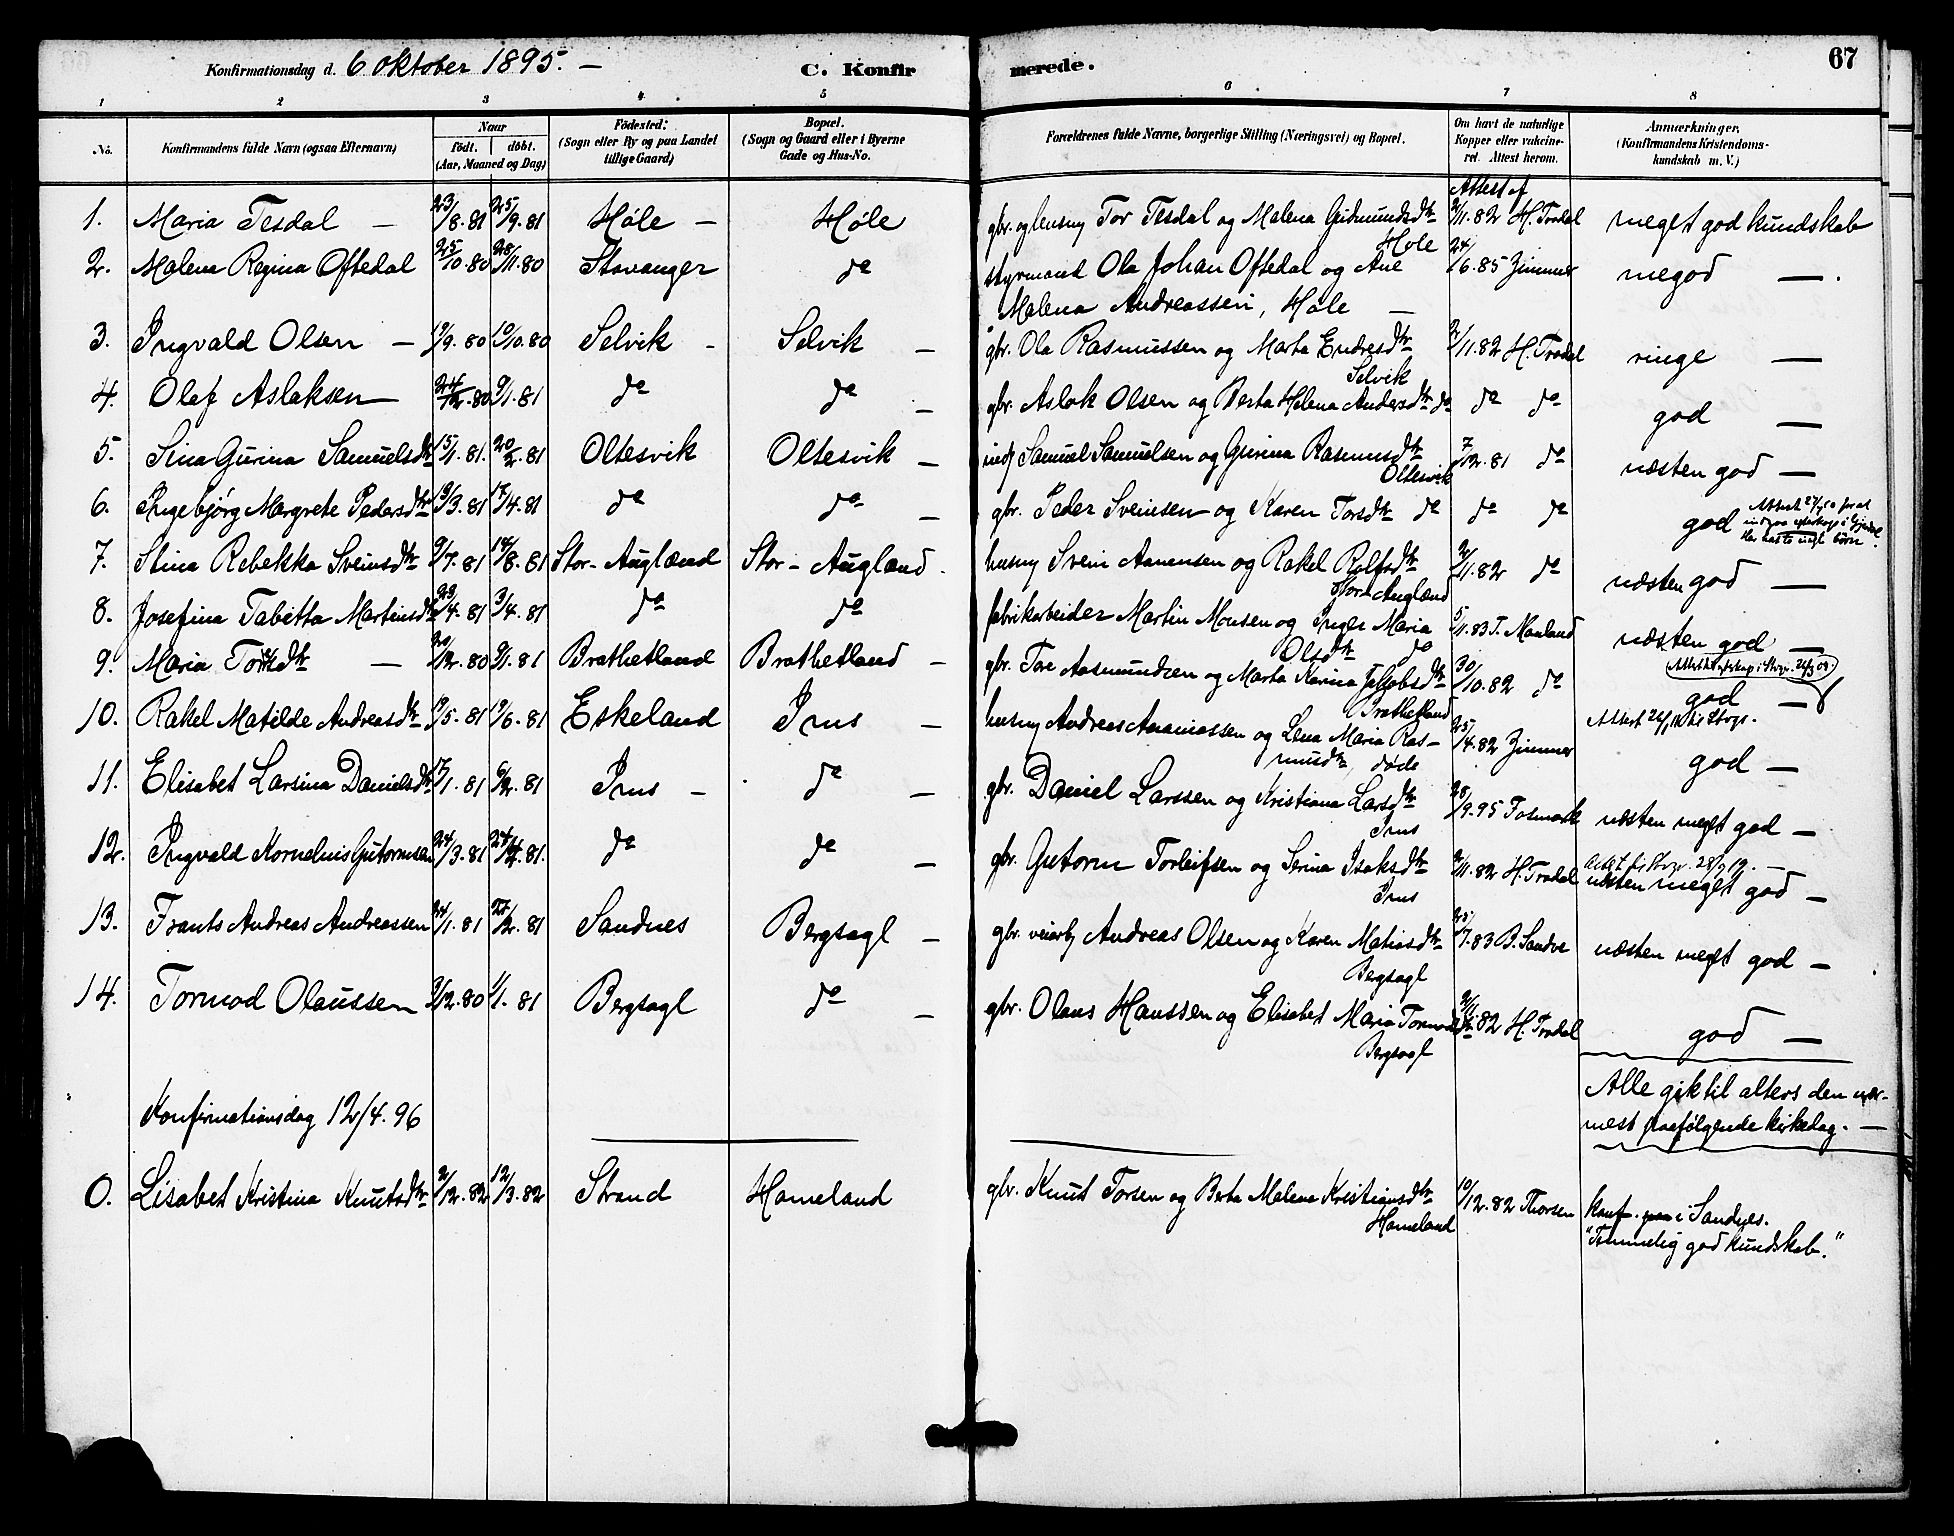 Konfirmationsdag d. 6 oktober 1895. —
C. Konfirmerede.
67
1 2 3 4 5 6 7 8
No.
Konfirmandens fulde Navn (ogsaa Efternavn)
Naar
født. døbt.
(Aar, Maaned og Dag)
Födested:
(Sogn eller By og paa Landet
tillige Gaard)
Bopæl.
(Sogn og Gaard eller i Byerne
Gade og Hus-No.
Forældrenes fulde Navne, borgerlige Stilling (Næringsvei) og Bopæl.
Om havt de naturlige
Kopper eller vakcine-
ret. Attest herom.
Anmærkninger,
(Konfirmandens Kristendoms-
kundskab m. V.)
Attest af
1. Maria Tesdal — 23/8.81 25/9.81 Høle — Høle gbr. og lensm Tor Tesdal og Malena Gudmundsdtr Høle 2/11.82 H. Trodal meget god kundskab
2. Malena Regina Oftedal 25/10.80 28/11.80 Stavanger do styrmand Ola Johan Oftedal og Ane
Malena Andreassen, Høle — 24/6.85 Zimmer megod — .
3. Ingvald Olsen — 19/9.80 10/10.80 Selvik - Selvik — gbr. Ola Rasmussen og Marta Endresdtr
Selvik 2/11.82 H. Trodal ringe —
4. Olaf Aslaksen — 24/12.80 9/1.81 do do — gbr. Aslak Olsen og Berta Helena Andersdtr do do do god —
5. Sina Gurina Samuelsdtr 15/1.81. 20/2.81 Oltesvik Oltesvik — inds Samuel Samuelsen og Gurina Rasmusdtr
Oltesvik 7/12.81 do næsten god —
6. Ingebjørg Margrete Pedersdtr 19/3.81 17/4.81 do do — gbr. Peder Sveinsen og Karen Torsdtr do do do god
7. Stina Rebekka Sveinsdtr 9/7.81 14/8.81 Stor-Augland Stor-Augland. husmy Svein Aanensen og Rakel Rolfsdtr
Stor-Augland 2/11.82 do næsten god —
8. Josefina Tabitta Martinsdtr 23/4.81 3/4.81 do do fabrikarbeider Martin Monsen og Inger Maria
Olsdtr do 5/11.83 T. Manland næsten god —
9. Maria Torsdtr — 20/12.80 9/1.81 Brathetland Brathetland — gbr. Tore Aasmundsen og Marta Karina Jakobsdtr
Brathetland 30/10.82 do god —
10. Rakel Matilde Andreasdtr 19/5.81 19/6.81 Eskeland Ims — husmy Andreas Ananiassen og Lena Maria Ras-
musdtr, døde 25/4.82 Zimmer god —
11. Elisabet Larsina Danielsdtr 17/1.81 6/2.81 Ims — do — gbr. Daniel Larssen og Kristiana Larsdtr
Ims 28/9.95 Fosmark næsten meget god —
12. Ingvald Kornelius Gutormsen 24/3.81 24/4.81. do do — gbr. Gutorm Torleifsen og Serina Isaksdtr
Ims 2/11.82 H. Trodal næsten meget god —
13. Frants Andreas Andreassen 24/1.81 27/2.81 Sandnes Bergsagl — gbr. veiarb Andreas Olsen og Karen Matiasdtr
Bergsagl 25/7.83 B. Sandve næsten meget god —
14. Tormod Olaussen 3/12.80 1/1.81 Bergsagl do — gbr. Olaus Hanssen og Elisabet Maria Tormodsdtr
Bergsagl 2/11.82 H. Trodal god —
Alle gik til alters den nær-
mest paafølgende kirkedag. —
Konfirmationsdag 12/4.96
0. Lisabet Kristina Knutsdtr 2/12.82 12/3.82 Strand Hommeland gbr. Knut Torsen og Berta Malena Kristiansdtr
Hommeland 10/12.82 Thorsen konf. i Sandnes.
"Temmelig god kundskab."